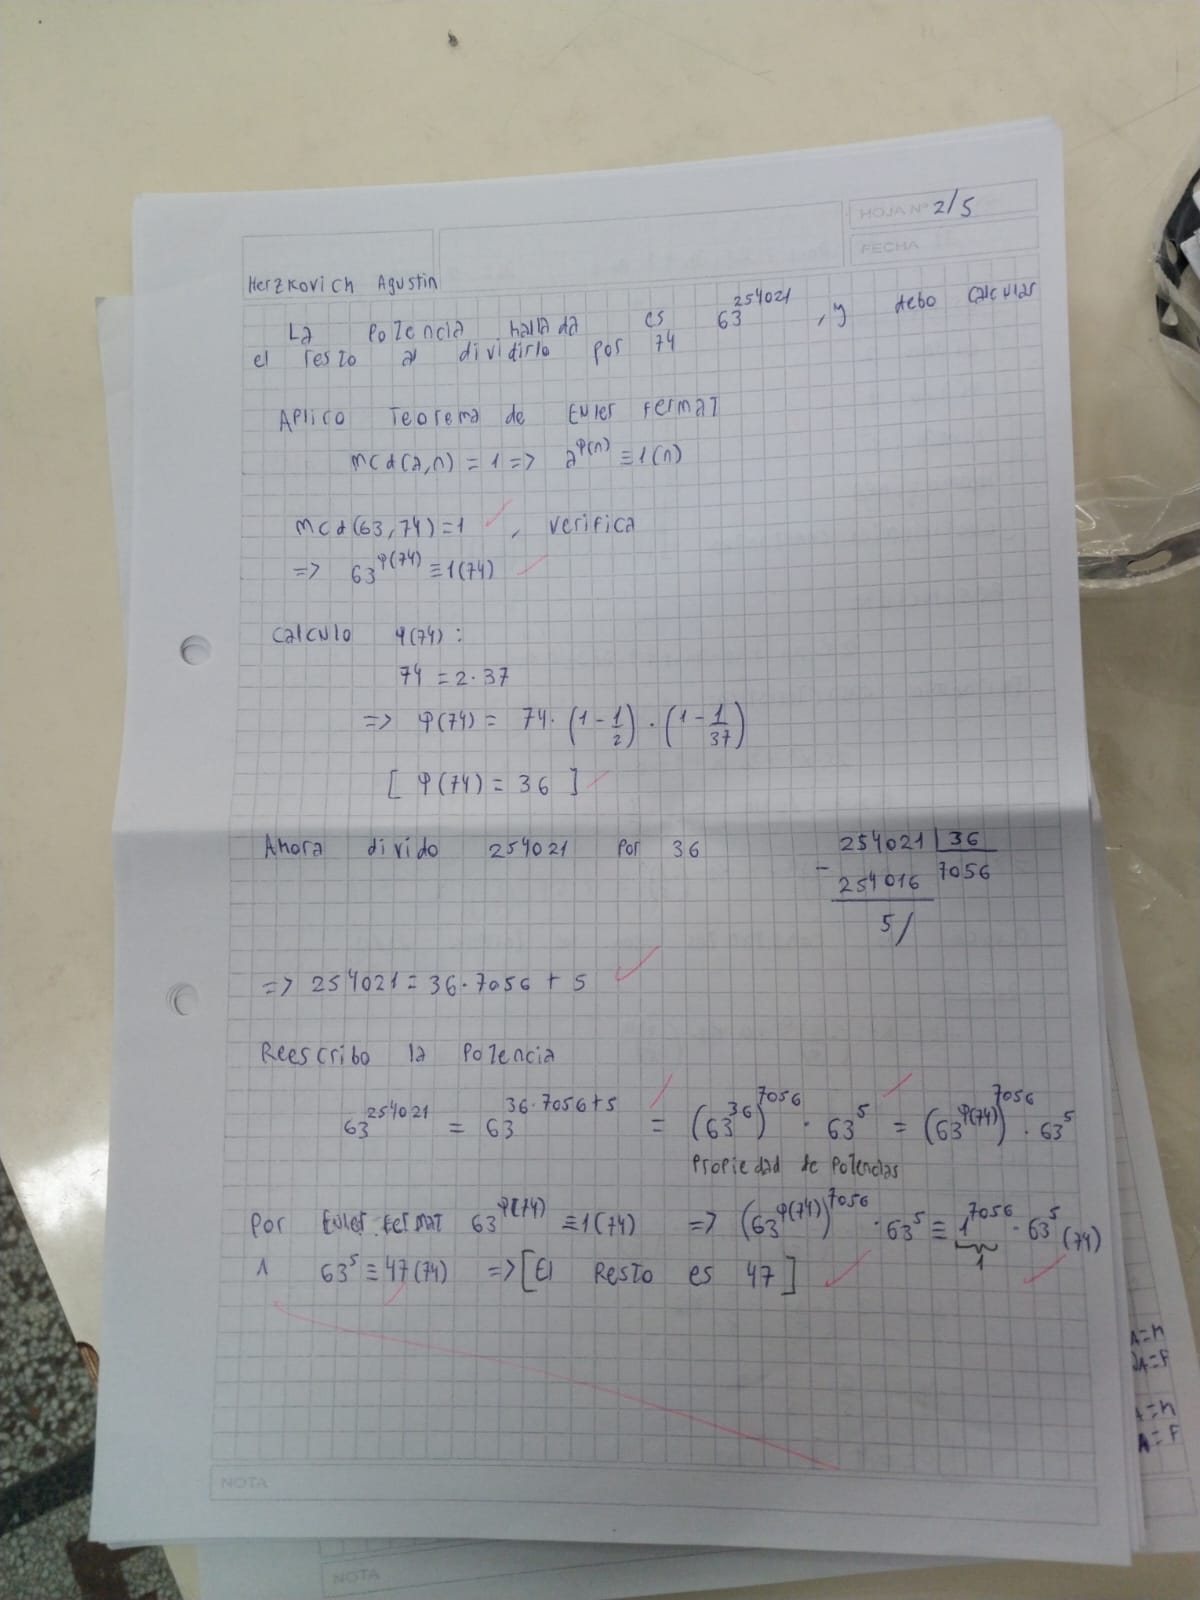 HOJA Nº 2/5
FECHA
Herzkovich Agustin
La potencia hallada es 63^254021, y debo calcular
el resto al dividirlo por 74
Aplico Teorema de Euler Fermat
mcd(a,n) = 1 => a^φ(n) ≡ 1(n)
mcd(63,74) = 1, verifica
=> 63^φ(74) ≡ 1(74)
Calculo φ(74):
74 = 2·37
=> φ(74) = 74·(1 - 1/2)·(1 - 1/37)
[φ(74) = 36]
Ahora divido 254021 por 36
254021 | 36
- 254016 7056
5/
=> 254021 = 36·7056 + 5
Reescribo la potencia
63^254021 = 63^(36·7056+5) = (63^36)^7056 · 63^5 = (63^φ(74))^7056 · 63^5
Propiedad de potencias
Por Euler Fermat 63^φ(74) ≡ 1(74) => (63^φ(74))^7056 · 63^5 ≡ 1^7056 · 63^5 (74)
1
∧ 63^5 ≡ 47(74) => [El Resto es 47]
NOTA
A=F
NOTA